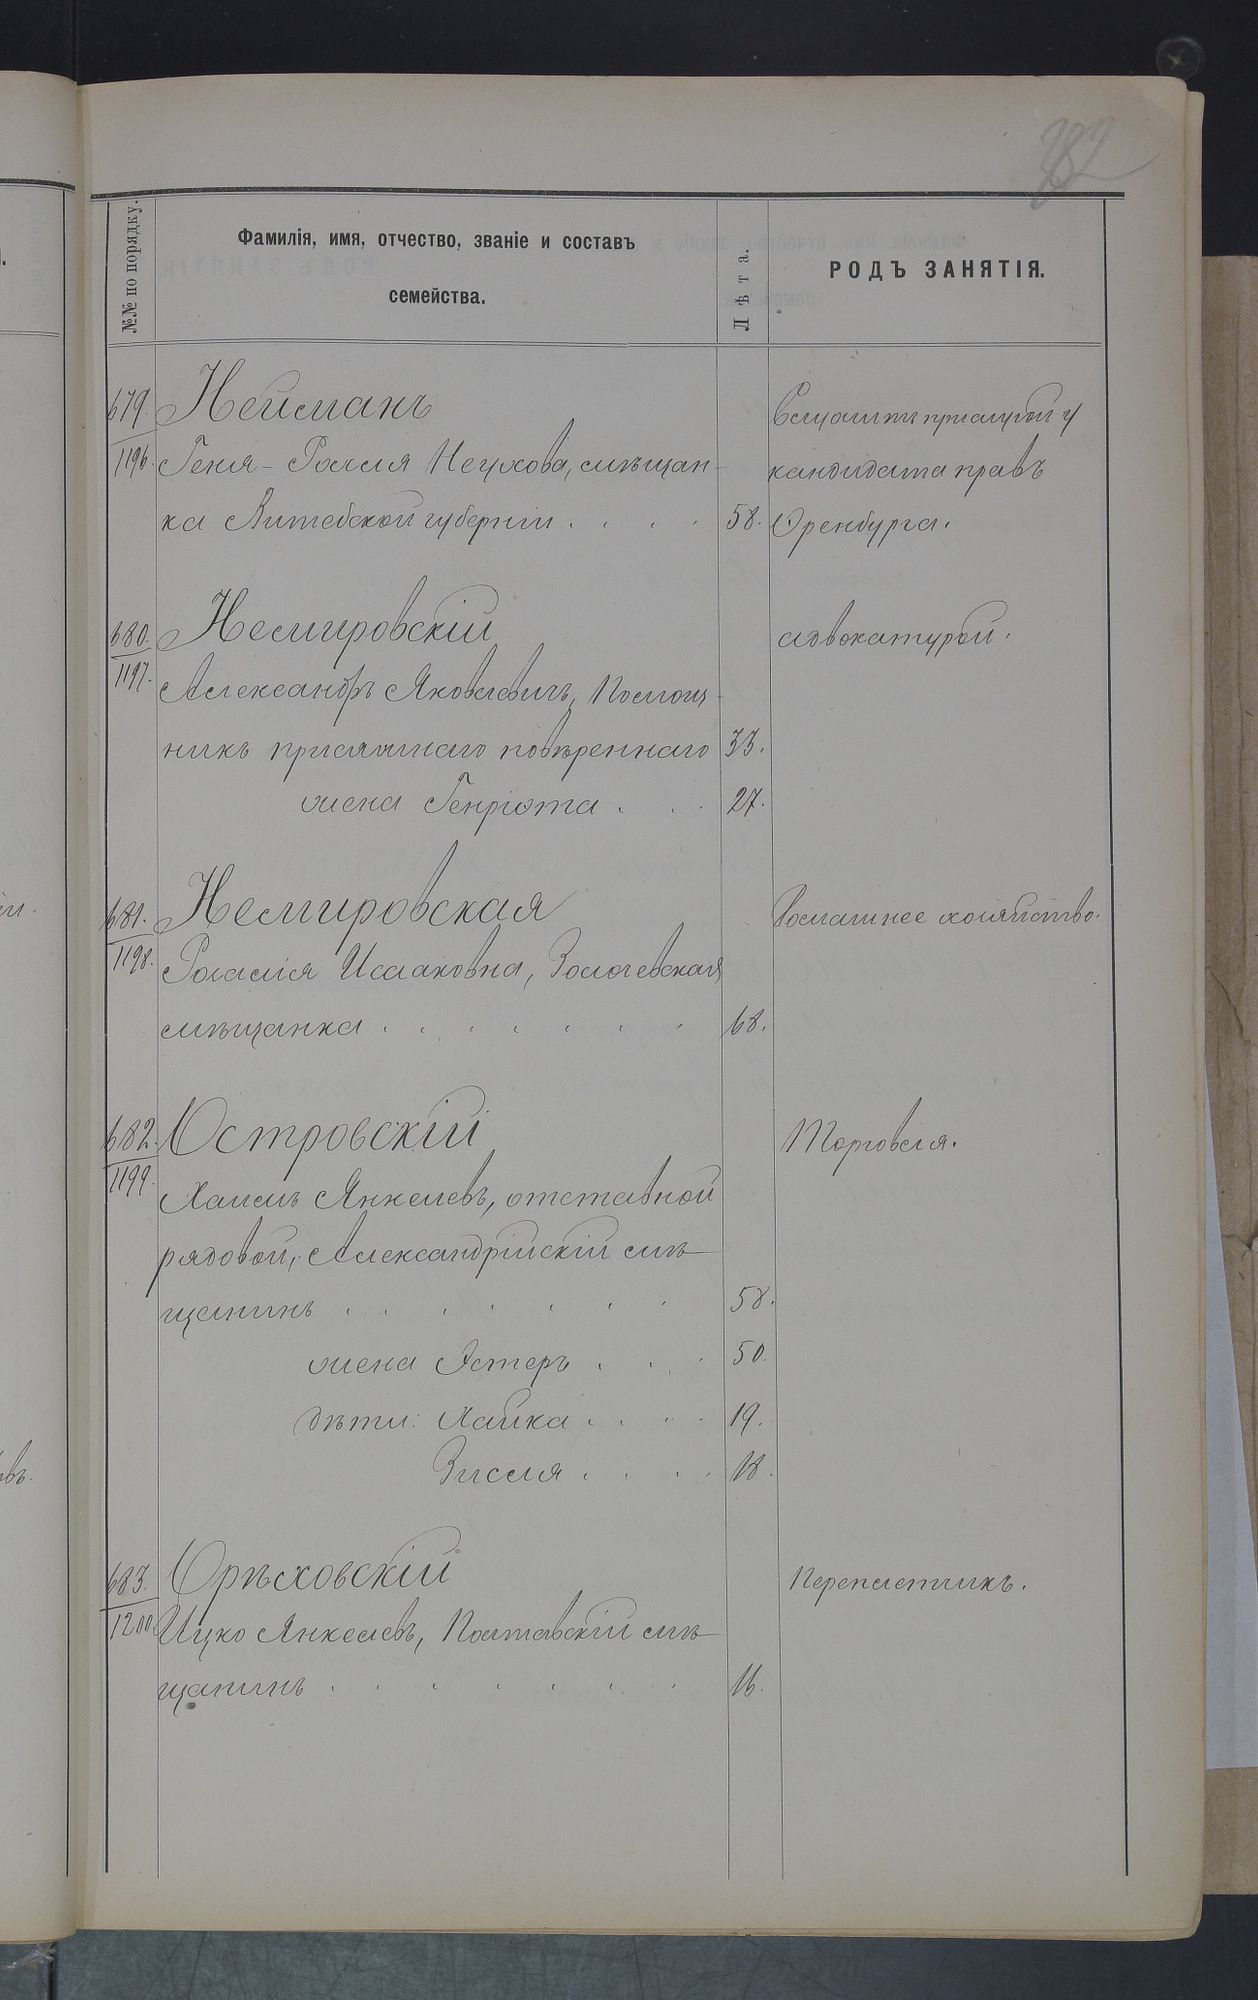 382
№№ по порядку.
Фамилія, имя, отчество, званіе и составъ
семейства.
Лѣта.
РОДЪ ЗАНЯТІЯ.
679. Нейманъ
1196. Геня-Рохля Неухова, мѣщан-
ка Витебской губерніи . . . . 58.
Служитъ прислугой у
кандидата правъ
Оренбурга.
680. Немировскій адвокатурой.
1197. Александръ Яковлевичъ, Помощ-
никъ присяжнаго повѣреннаго 33.
жена Генріэта . . . 27.
681. Немировская Домашнее хозяйство.
1198. Розалія Исааковна, Золочевская
мѣщанка . . . . . . . 68.
682. Островскій Торговля.
1199. Хаимъ Янкелевъ, отставной
рядовой, Александрійскій мѣ-
щанинъ . . . . . . . 58.
жена Эстеръ . . . 50.
дѣти: Хайка . . . . 19.
Зисля . . . . 18.
683. Орѣховскій переплетчикъ.
1200. Ицко Янкелевъ, Полтавскій мѣ-
щанинъ . . . . . . . 16.